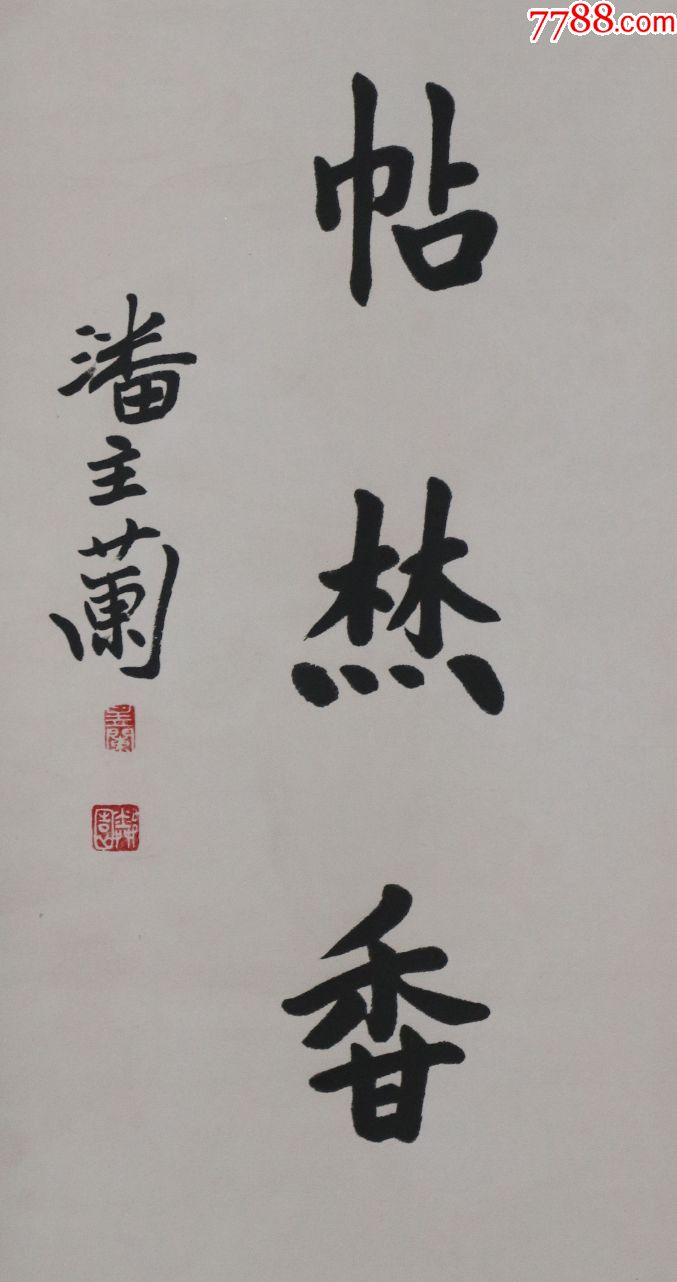 7788.com
帖焚香
潘主蘭
主蘭